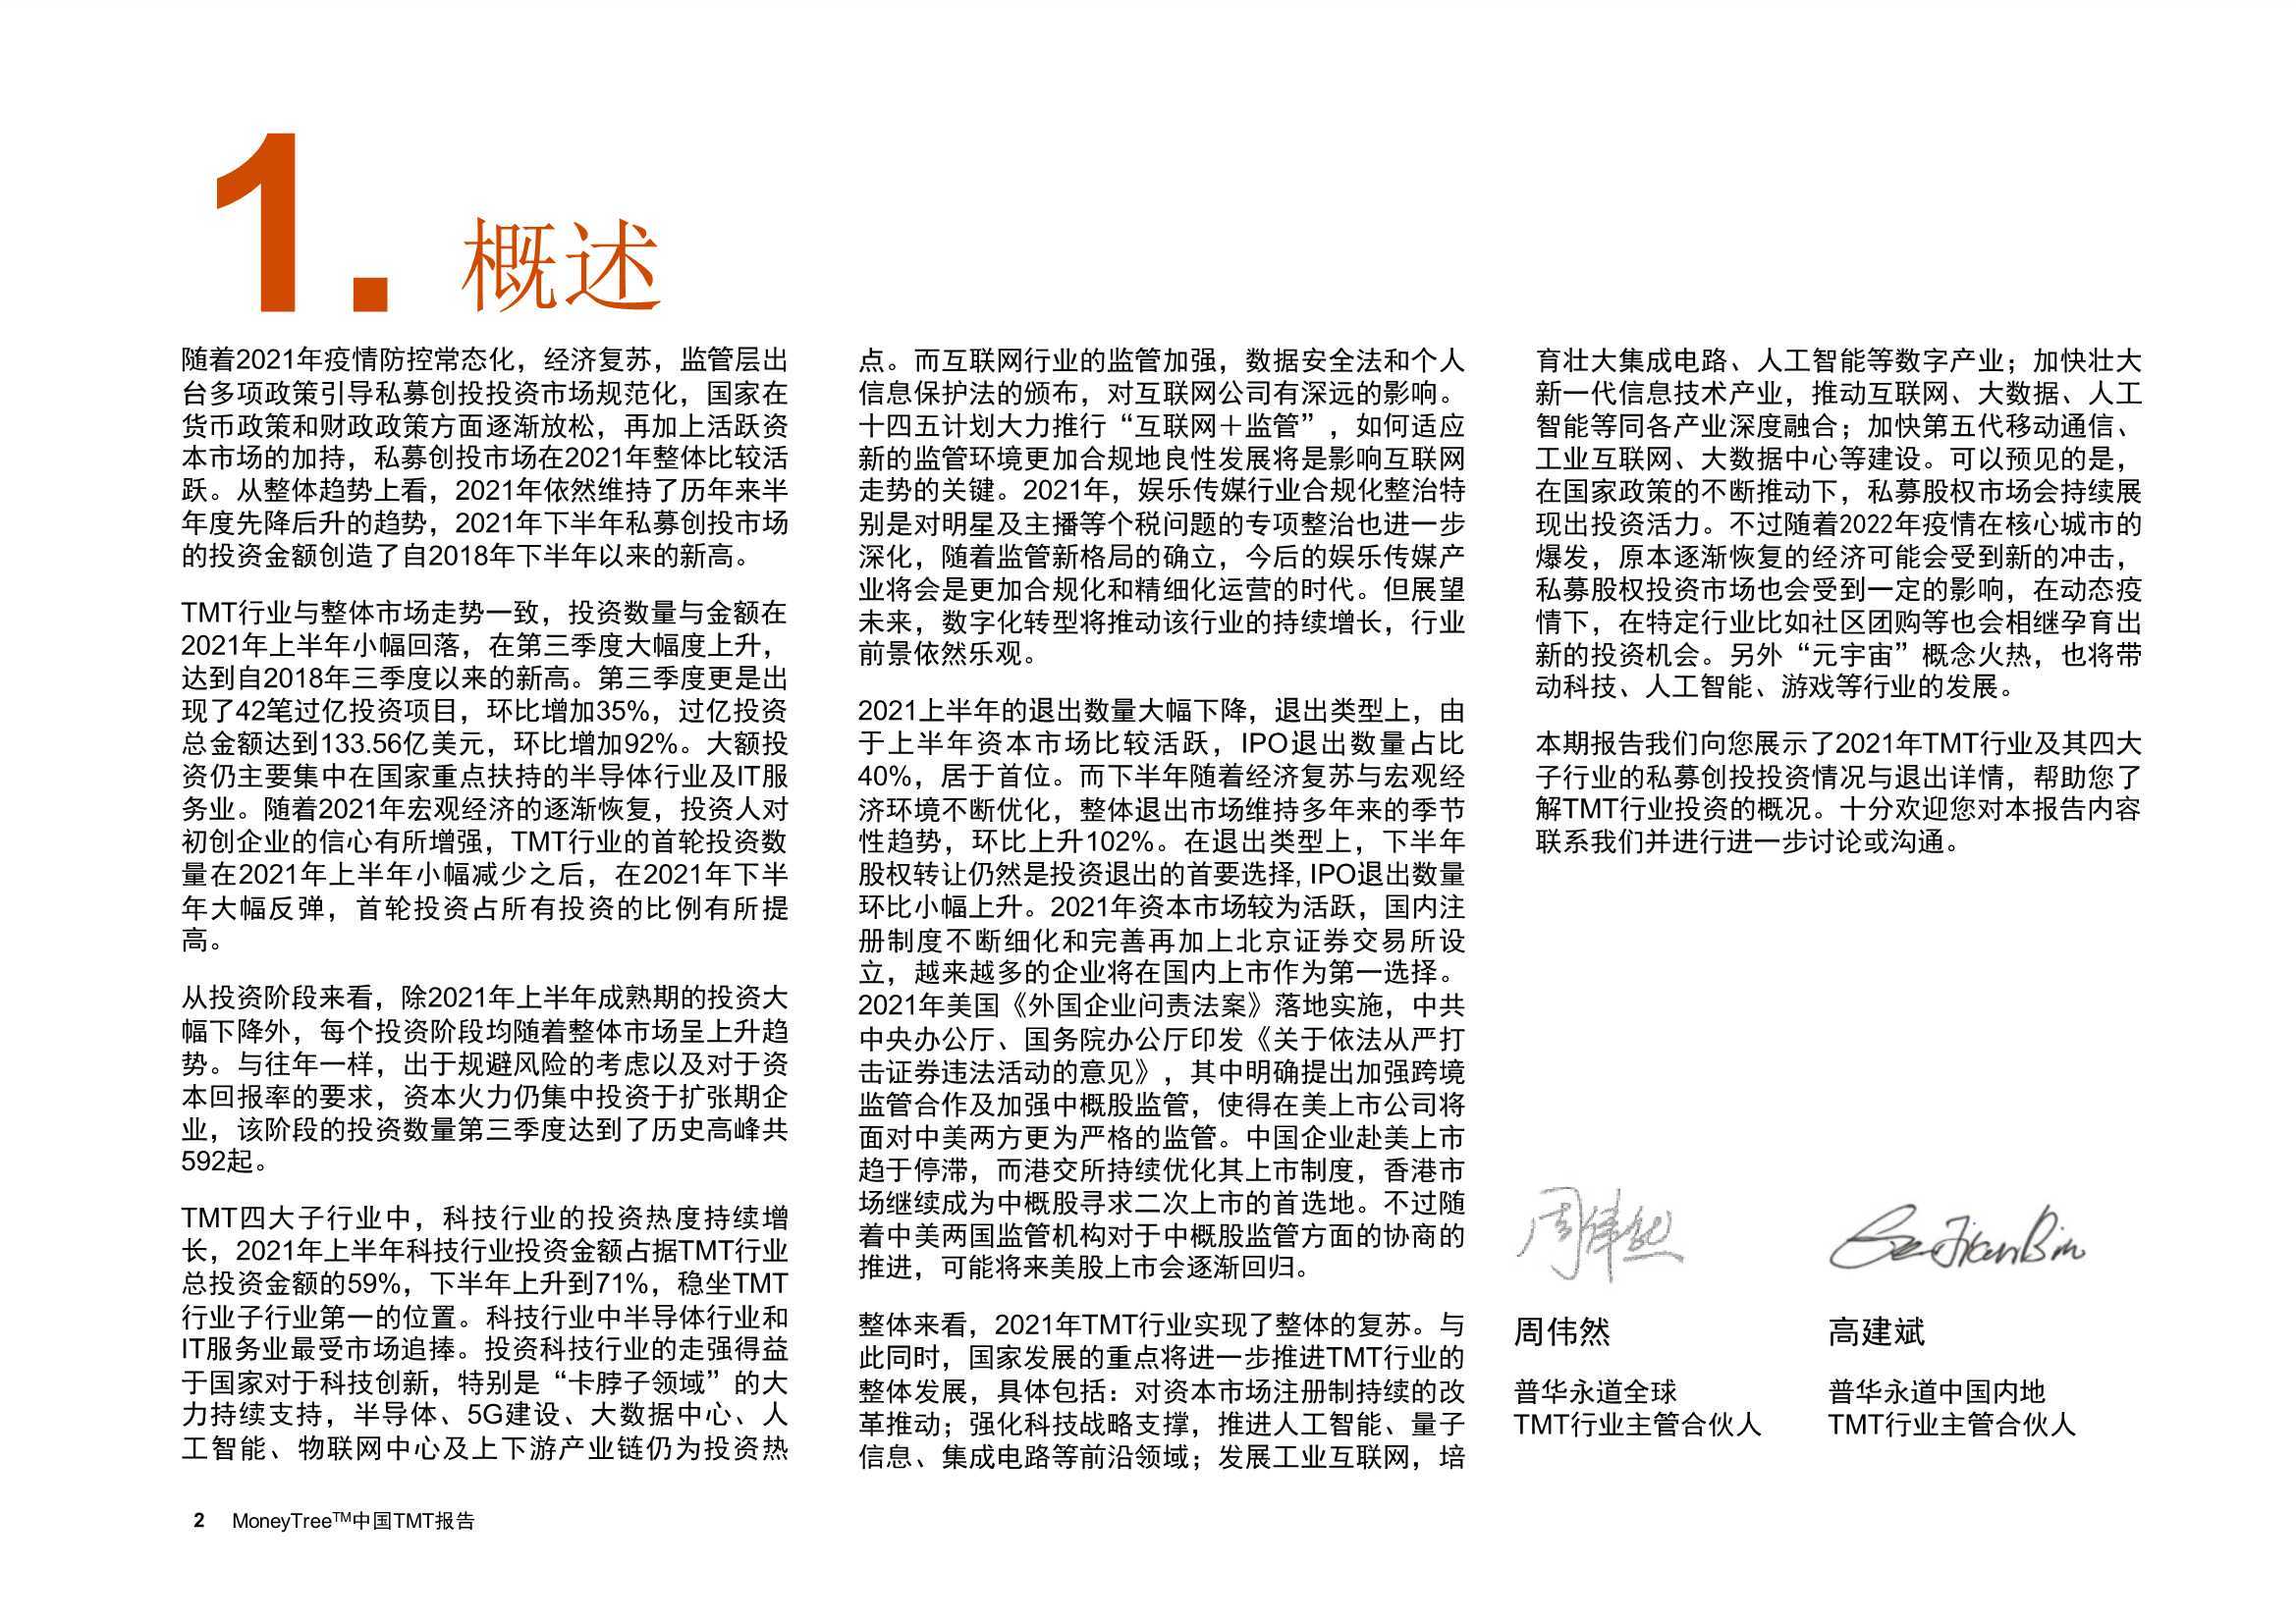 1. 概述
随着2021年疫情防控常态化，经济复苏，监管层出
台多项政策引导私募创投投资市场规范化，国家在
货币政策和财政政策方面逐渐放松，再加上活跃资
本市场的加持，私募创投市场在2021年整体比较活
跃。从整体趋势上看，2021年依然维持了历年来半
年度先降后升的趋势，2021年下半年私募创投市场
的投资金额创造了自2018年下半年以来的新高。
TMT行业与整体市场走势一致，投资数量与金额在
2021年上半年小幅回落，在第三季度大幅度上升，
达到自2018年三季度以来的新高。第三季度更是出
现了42笔过亿投资项目，环比增加35%，过亿投资
总金额达到133.56亿美元，环比增加92%。大额投
资仍主要集中在国家重点扶持的半导体行业及IT服
务业。随着2021年宏观经济的逐渐恢复，投资人对
初创企业的信心有所增强，TMT行业的首轮投资数
量在2021年上半年小幅减少之后，在2021年下半
年大幅反弹，首轮投资占所有投资的比例有所提
高。
从投资阶段来看，除2021年上半年成熟期的投资大
幅下降外，每个投资阶段均随着整体市场呈上升趋
势。与往年一样，出于规避风险的考虑以及对于资
本回报率的要求，资本火力仍集中投资于扩张期企
业，该阶段的投资数量第三季度达到了历史高峰共
592起。
TMT四大子行业中，科技行业的投资热度持续增
长，2021年上半年科技行业投资金额占据TMT行业
总投资金额的59%，下半年上升到71%，稳坐TMT
行业子行业第一的位置。科技行业中半导体行业和
IT服务业最受市场追捧。投资科技行业的走强得益
于国家对于科技创新，特别是“卡脖子领域”的大
力持续支持，半导体、5G建设、大数据中心、人
工智能、物联网中心及上下游产业链仍为投资热
点。而互联网行业的监管加强，数据安全法和个人
信息保护法的颁布，对互联网公司有深远的影响。
十四五计划大力推行“互联网＋监管”，如何适应
新的监管环境更加合规地良性发展将是影响互联网
走势的关键。2021年，娱乐传媒行业合规化整治特
别是对明星及主播等个税问题的专项整治也进一步
深化，随着监管新格局的确立，今后的娱乐传媒产
业将会是更加合规化和精细化运营的时代。但展望
未来，数字化转型将推动该行业的持续增长，行业
前景依然乐观。
2021上半年的退出数量大幅下降，退出类型上，由
于上半年资本市场比较活跃，IPO退出数量占比
40%，居于首位。而下半年随着经济复苏与宏观经
济环境不断优化，整体退出市场维持多年来的季节
性趋势，环比上升102%。在退出类型上，下半年
股权转让仍然是投资退出的首要选择, IPO退出数量
环比小幅上升。2021年资本市场较为活跃，国内注
册制度不断细化和完善再加上北京证券交易所设
立，越来越多的企业将在国内上市作为第一选择。
2021年美国《外国企业问责法案》落地实施，中共
中央办公厅、国务院办公厅印发《关于依法从严打
击证券违法活动的意见》，其中明确提出加强跨境
监管合作及加强中概股监管，使得在美上市公司将
面对中美两方更为严格的监管。中国企业赴美上市
趋于停滞，而港交所持续优化其上市制度，香港市
场继续成为中概股寻求二次上市的首选地。不过随
着中美两国监管机构对于中概股监管方面的协商的
推进，可能将来美股上市会逐渐回归。
整体来看，2021年TMT行业实现了整体的复苏。与
此同时，国家发展的重点将进一步推进TMT行业的
整体发展，具体包括：对资本市场注册制持续的改
革推动；强化科技战略支撑，推进人工智能、量子
信息、集成电路等前沿领域；发展工业互联网，培
育壮大集成电路、人工智能等数字产业；加快壮大
新一代信息技术产业，推动互联网、大数据、人工
智能等同各产业深度融合；加快第五代移动通信、
工业互联网、大数据中心等建设。可以预见的是，
在国家政策的不断推动下，私募股权市场会持续展
现出投资活力。不过随着2022年疫情在核心城市的
爆发，原本逐渐恢复的经济可能会受到新的冲击，
私募股权投资市场也会受到一定的影响，在动态疫
情下，在特定行业比如社区团购等也会相继孕育出
新的投资机会。另外“元宇宙”概念火热，也将带
动科技、人工智能、游戏等行业的发展。
本期报告我们向您展示了2021年TMT行业及其四大
子行业的私募创投投资情况与退出详情，帮助您了
解TMT行业投资的概况。十分欢迎您对本报告内容
联系我们并进行进一步讨论或沟通。
周伟然
Gao JianBin
周伟然
普华永道全球
TMT行业主管合伙人
高建斌
普华永道中国内地
TMT行业主管合伙人
2 MoneyTree™中国TMT报告